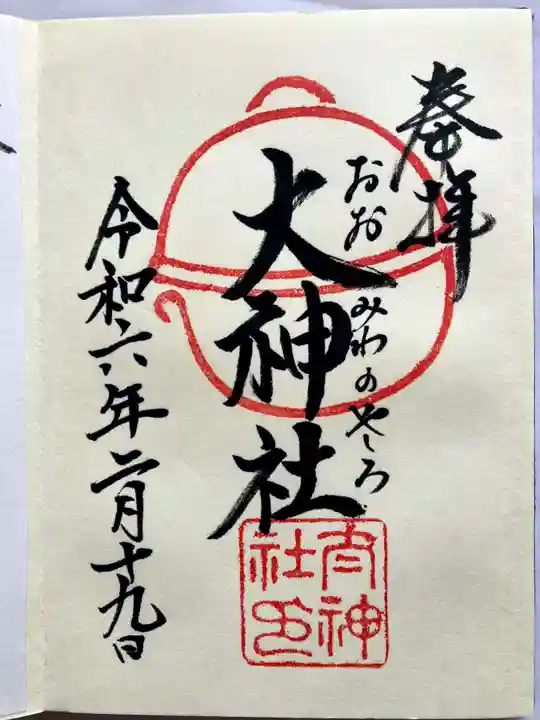 奉拝
おおみわのやしろ
大神社
大神
社印
令和六年二月十九日